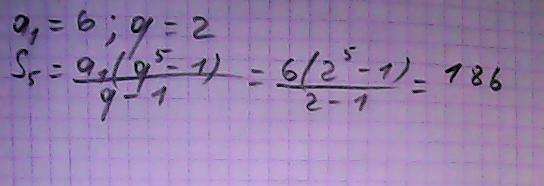 a₁ = 6 ; q = 2
S₅ = a₁(q⁵ - 1) / q - 1 = 6(2⁵ - 1) / 2 - 1 = 186